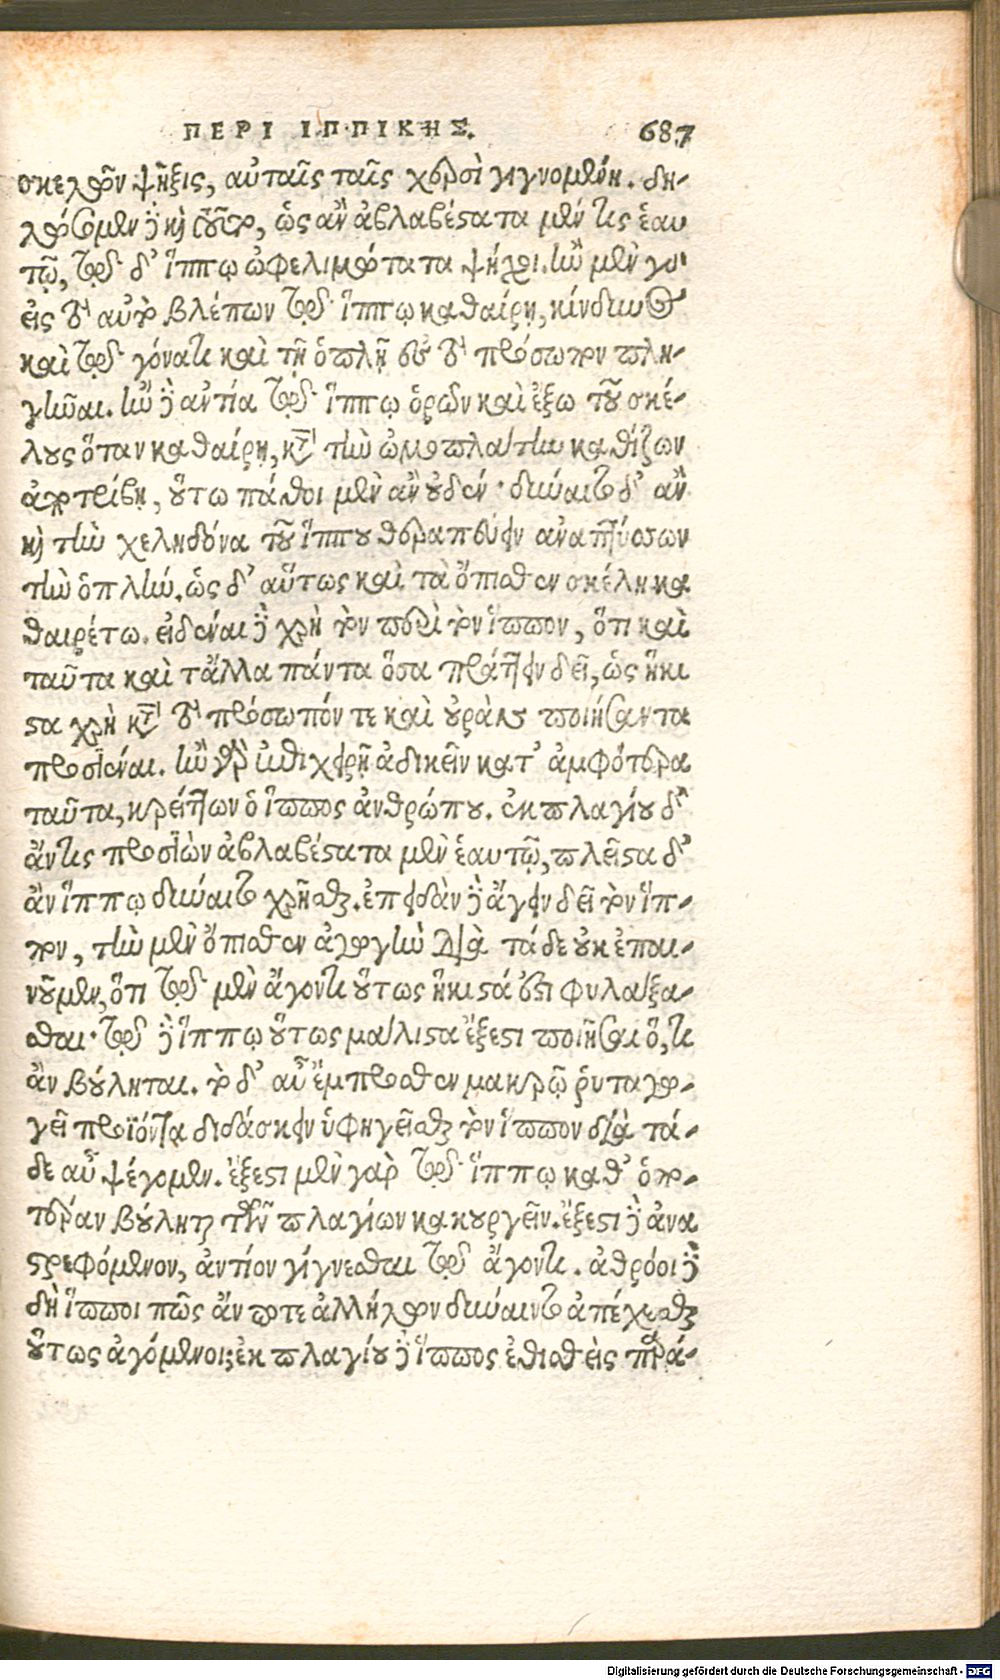 ΠΕΡΙ ΙΠΠΙΚΗΣ. 687
σκελῶν ψῆξις, αὐταῖς ταῖς χερσὶ γιγνομένη. δη-
λώσωμεν δὲ καὶ τοῦτο, ὡς ἂν ἀβλαβέστατα μέν τις ἑαυ
τῷ, τῷ δ' ἵππῳ ὠφελιμώτατα ψήχοι. ἢν μὲν γὰ
εἰς τὸ αὐτὸ βλέπων τῷ ἵππῳ καθαίρῃ, κίνδυνος
καὶ τῷ γόνατι καὶ τῇ ὁπλῇ εἰς τὸ πρόσωπον πλη-
γῆναι. ἢν δὲ ἀντία τῷ ἵππῳ ὁρῶν καὶ ἔξω τοῦ σκέ-
λους ὅταν καθαίρῃ, κατὰ τὴν ὠμοπλάτην καθίζων
ἀποτρίβῃ, οὕτω πάθοι μὲν ἂν οὐδέν. δύναιτο δ' ἂν
καὶ τὴν χελιδόνα τοῦ ἵππου θεραπεύειν ἀναπτύσσων
τὴν ὁπλήν. ὡς δ' αὕτως καὶ τὰ ὄπισθεν σκέλη κα
θαιρέτω. εἰδέναι δὲ χρὴ τὸν περὶ τὸν ἵππον, ὅτι καὶ
ταῦτα καὶ τἄλλα πάντα ὅσα πράττειν δεῖ, ὡς ἥκι
στα χρὴ κατὰ τὸ πρόσωπόν τε καὶ οὐρὰν ποιήσαντα
προσϊέναι. ἢν γὰρ ἐπιχειρῇ ἀδικεῖν κατ' ἀμφότερα
ταῦτα, κρείττων ὁ ἵππος ἀνθρώπου. ἐκ πλαγίου δ'
ἄν τις προσϊὼν ἀβλαβέστατα μὲν ἑαυτῷ, πλεῖστα δ'
ἂν ἵππῳ δύναιτο χρῆσθαι. ἐπειδὰν δὲ ἄγειν δεῖ τὸν ἵπ-
πον, τὴν μὲν ὄπισθεν ἀγωγὴν διὰ τάδε οὐκ ἐπαι-
νοῦμεν, ὅτι τῷ μὲν ἄγοντι οὕτως ἥκιστά ἐστι φυλάξα-
σθαι. τῷ δὲ ἵππῳ οὕτως μάλιστα ἔξεστι ποιῆσαι ὅ,τι
ἂν βούληται. τὸ δ' αὖ ἔμπροσθεν μακρῷ ῥυταγω-
γεῖ προϊόντα διδάσκειν ὑφηγεῖσθαι τὸν ἵππον διὰ τά-
δε αὖ ψέγομεν. ἔξεστι μὲν γὰρ τῷ ἵππῳ καθ' ὁπο-
τέραν βούληται τῶν πλαγίων κακουργεῖν. ἔξεστι δὲ ἀνα
στρεφόμενον, ἀντίον γίγνεσθαι τῷ ἄγοντι. ἀθρόοι δὲ
δὴ ἵπποι πῶς ἄν ποτε ἀλλήλων δύναιντο ἀπέχεσθαι
οὕτως ἀγόμενοι; ἐκ πλαγίου δὲ ἵππος ἐθισθεὶς παρά-
Digitalisierung gefördert durch die Deutsche Forschungsgemeinschaft - DFG